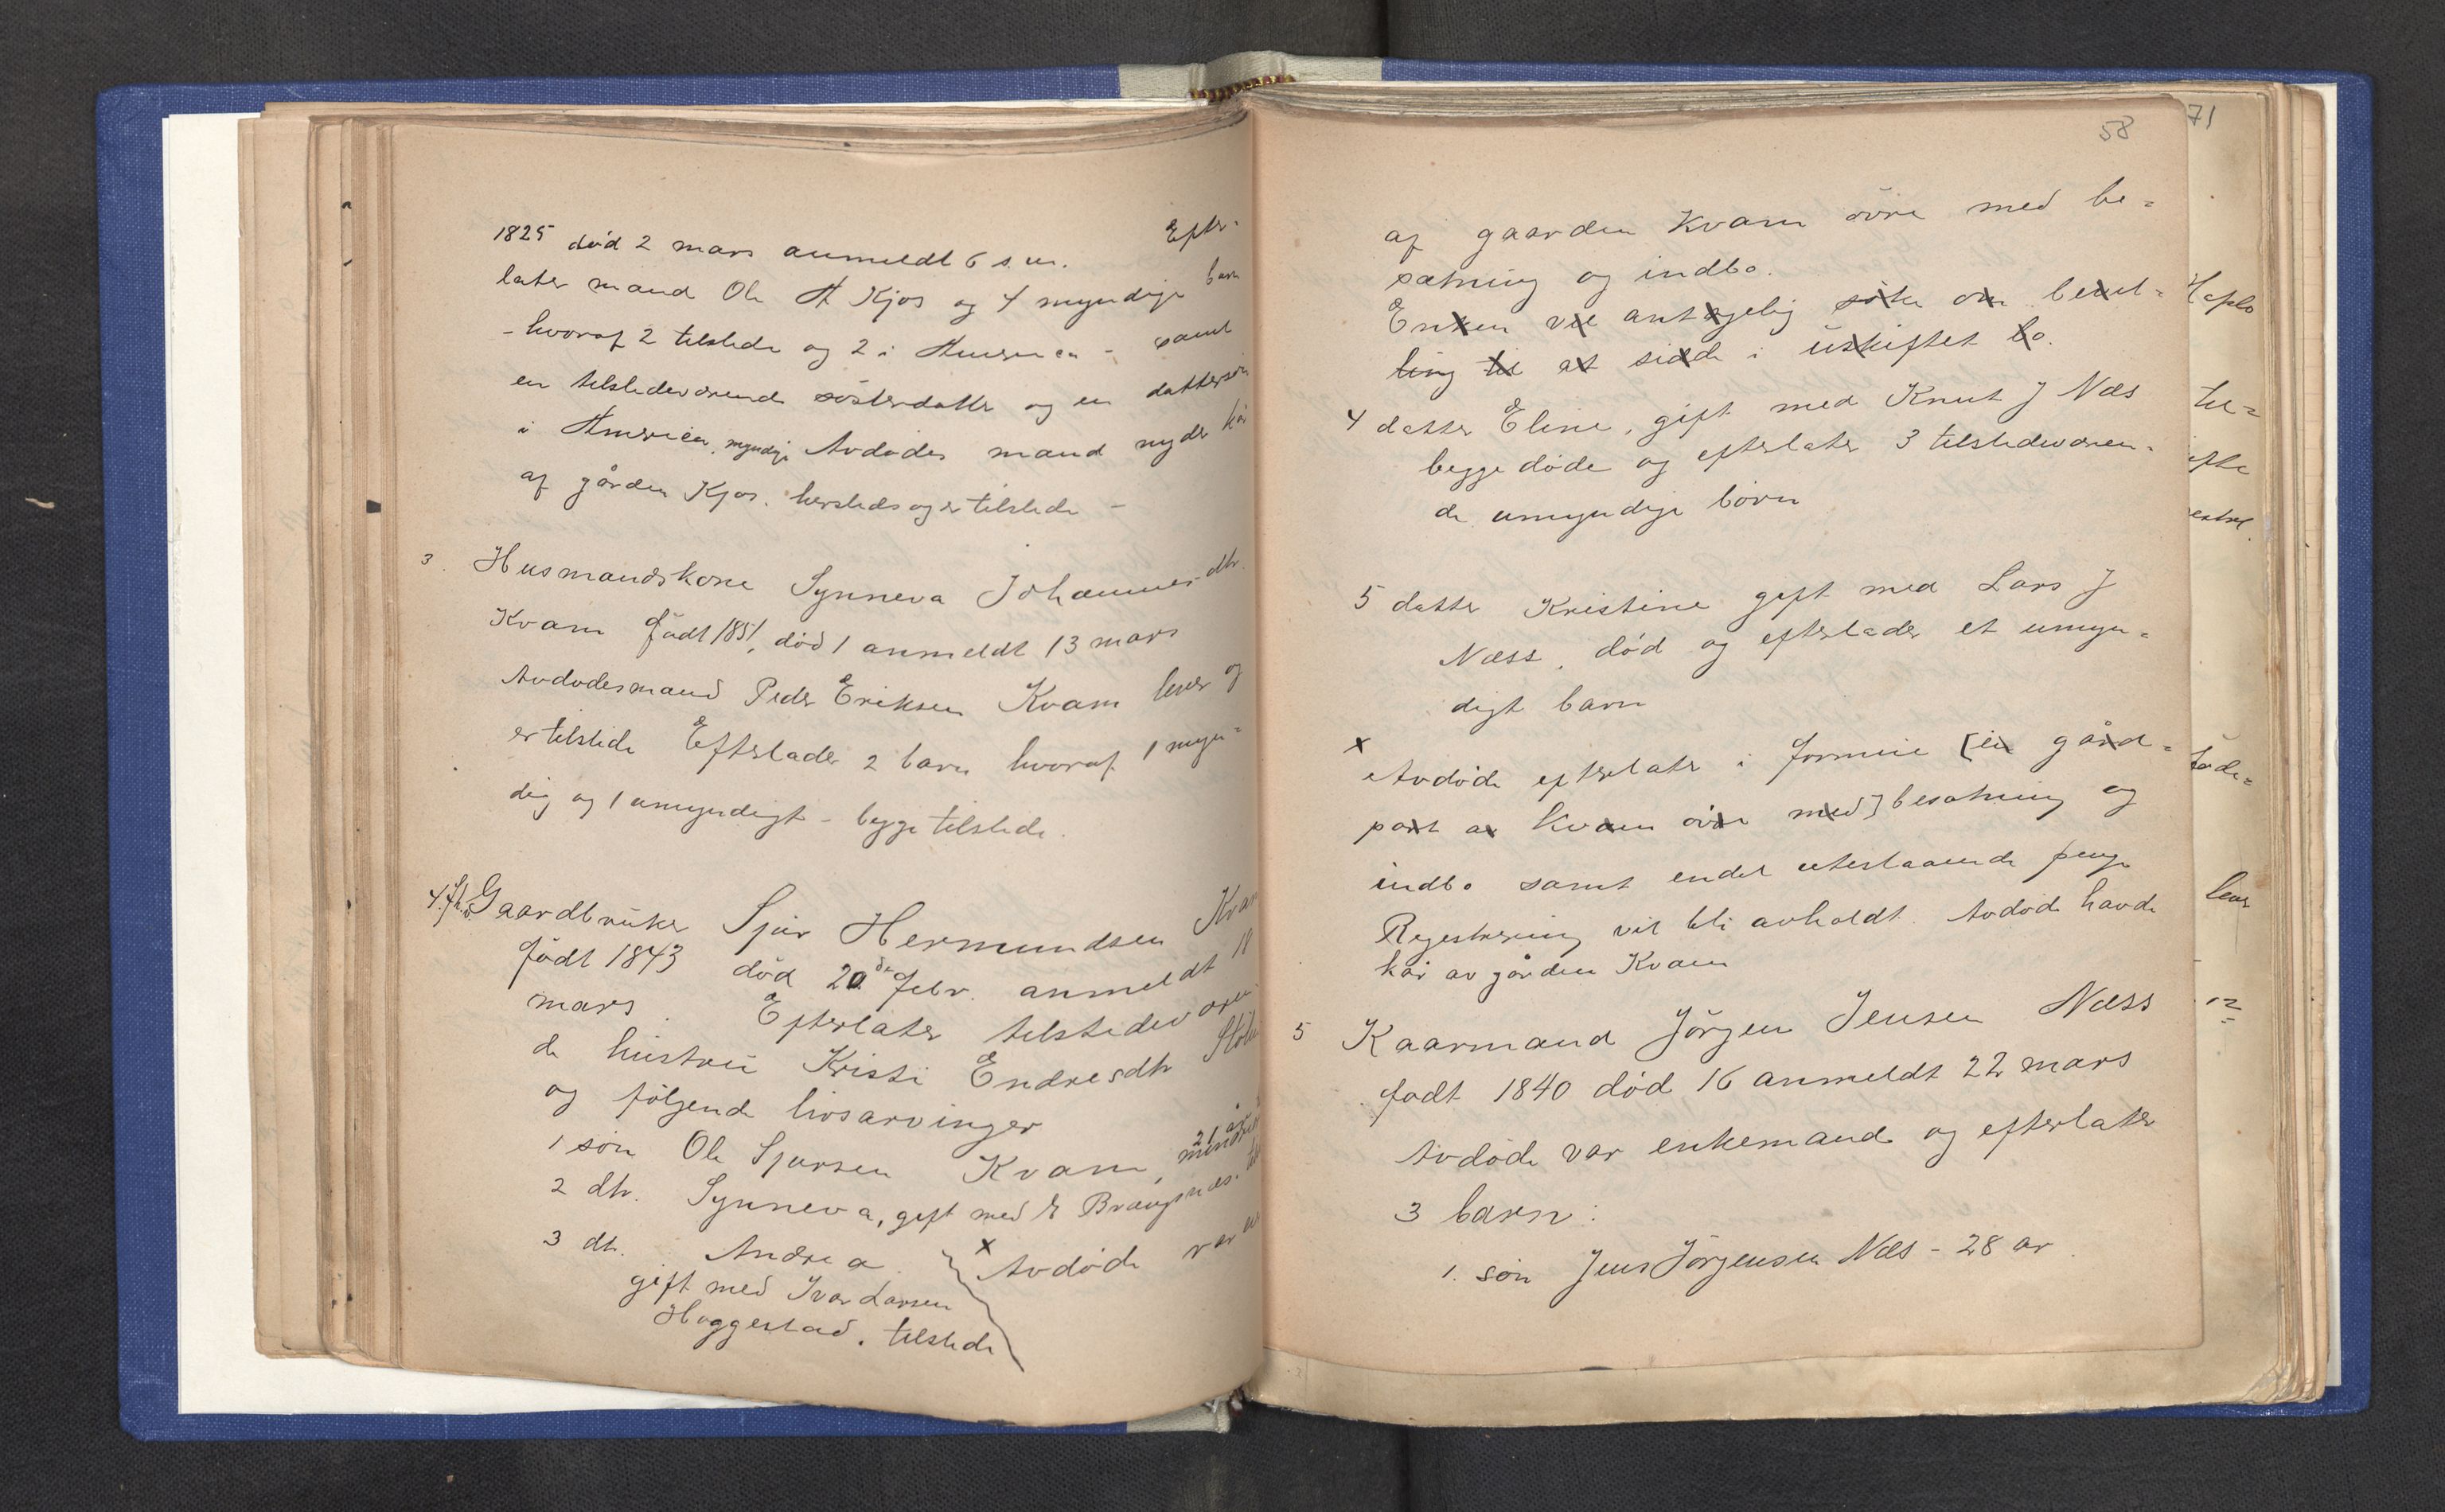 1825 død 2 mars anmeldt 6 s.m. Efter-
later mand Ole A Kjos og 4 myndige barn
- hvoraf 2 tilstede og 2 i Amerika - samt
en tilstedeværende sösterdatter og en dattersön
i Amerika, myndige Avdödes mand nyder kår
af gården Kjos. hersteds og er tilstede -
3. Husmandskone Synneva Johannesdtr.
Kvam födt 1851, död 1 anmeldt 13 mars
Avdödes mand Peder Eriksen Kvam lever og
er tilstede Efterlader 2 barn hvoraf 1 myn-
dig og 1 umyndigt - begge tilstede.
4. Gaardbruker Sjur Hermundsen Kvam
födt 1843 död 20de Febr. anmeldt 11
mars. Efterlater tilstedeværen-
de hustru Kristi Endresdtr
og følgende livsarvinger
1 sön Ole Sjursen Kvam, 21 år
2 dtr. Synneva, gift med E Brangsnæs.
3 dtr. Andrea. x Avdöde var
gift med Ivar Larsen
Hoggestad. tilstede
58
af gaarden Kvam övre med be-
sætning og indbo.
Enken vil antagelig söke om bevil-
ling til at sidde i uskiftet bo.
4 datter Eline, gift med Knut J Næs
begge döde og efterlater 3 tilstedeværen-
de umyndige börn
5 datter Kristine gift med Lars J
Næss, död og efterlader et umyn-
digt barn
x
Avdöde efterlater i formue [en gård-
part av Kvam övre med] besætning og
indbo samt endel utestaaende penge
Registrering vil bli avholdt. Avdöde havde
kår av gården Kvam
5 Kaarmand Jörgen Jensen Næss
födt 1840 död 16 anmeldt 22 mars
Avdöde var enkemand og efterlater
3 barn:
1. sön Jens Jörgensen Næs - 28 ar.
71